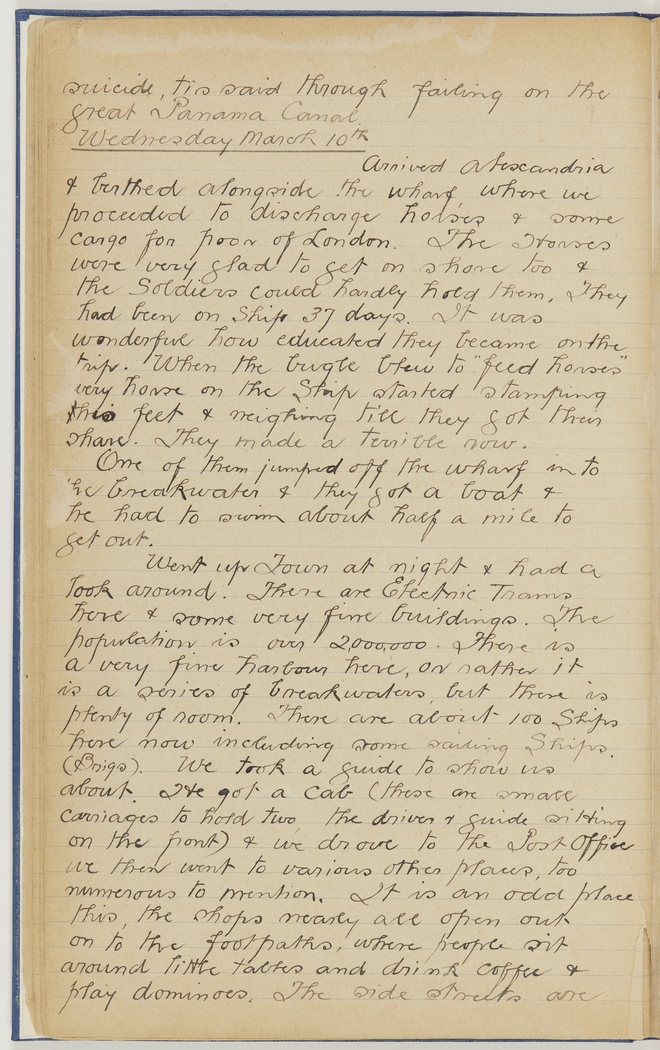 suicide, tis said through failing on the
great Panama Canal.
Wednesday March 10th
Arrived Alexandria
& berthed alongside the wharf, where we
proceeded to discharge horses & some
cargo for poor of London. The Horses
were very glad to get on shore too &
the Soldiers could hardly hold them. They
had been on Ship 37 days. It was
wonderful how educated they became on the
trip. When the bugle blew to "feed horses"
very horse on the Ship started stamping
this feet & neighing till they got their
share. They made a terrible row.
One of them jumped off the wharf in to
he breakwater & they got a boat &
he had to swim about half a mile to
get out.
Went up Town at night & had a
look around. There are Electric Trams
here & some very fine buildings. The
population is over 2,000,000. There is
a very fine harbour here, or rather it
is a series of breakwaters, but there is
plenty of room. There are about 100 Ships
here now including some sailing Ships.
(Brigs). We took a guide to show us
about. He got a Cab (these are small
carriages to hold two, the driver & guide sitting
on the front) & we drove to the Post Office
we then went to various other places, too
numerous to mention. It is an odd place
this, the shops nearly all open out
on to the footpaths, where people sit
around little tables and drink coffee &
play dominoes. The side streets are